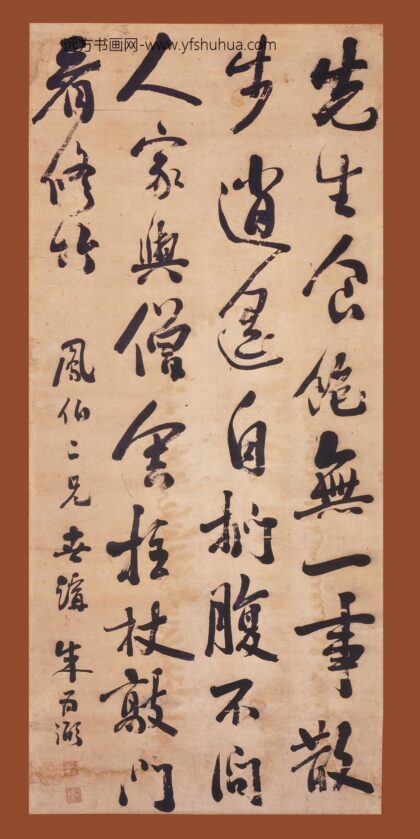 远方书画网-www.yfshuhua.com_
先生食飽無一事散
步逍遙自捫腹不問
人家與僧舍拄杖敲門
看修竹 鳳伯二兄世講 朱为弼